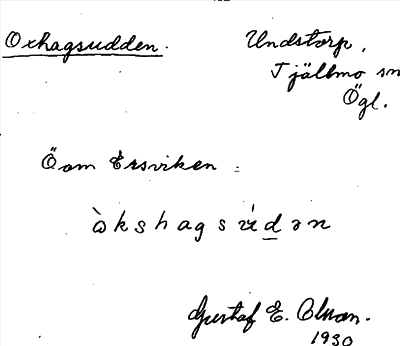 Oxhagsudden. Undstorp,
Tjällmo sn
Ögl.
Ö om Ersviken =
òkshagsúdən
Gustaf E. Olson.
1930